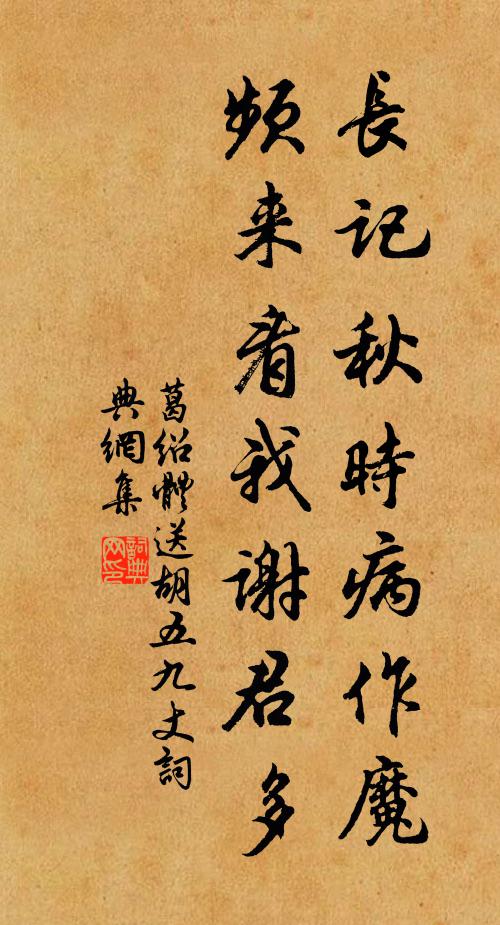 長記秋時病作魔
頻来看我謝君多
葛紹體送胡五九丈詞
典網集
詞典
网印